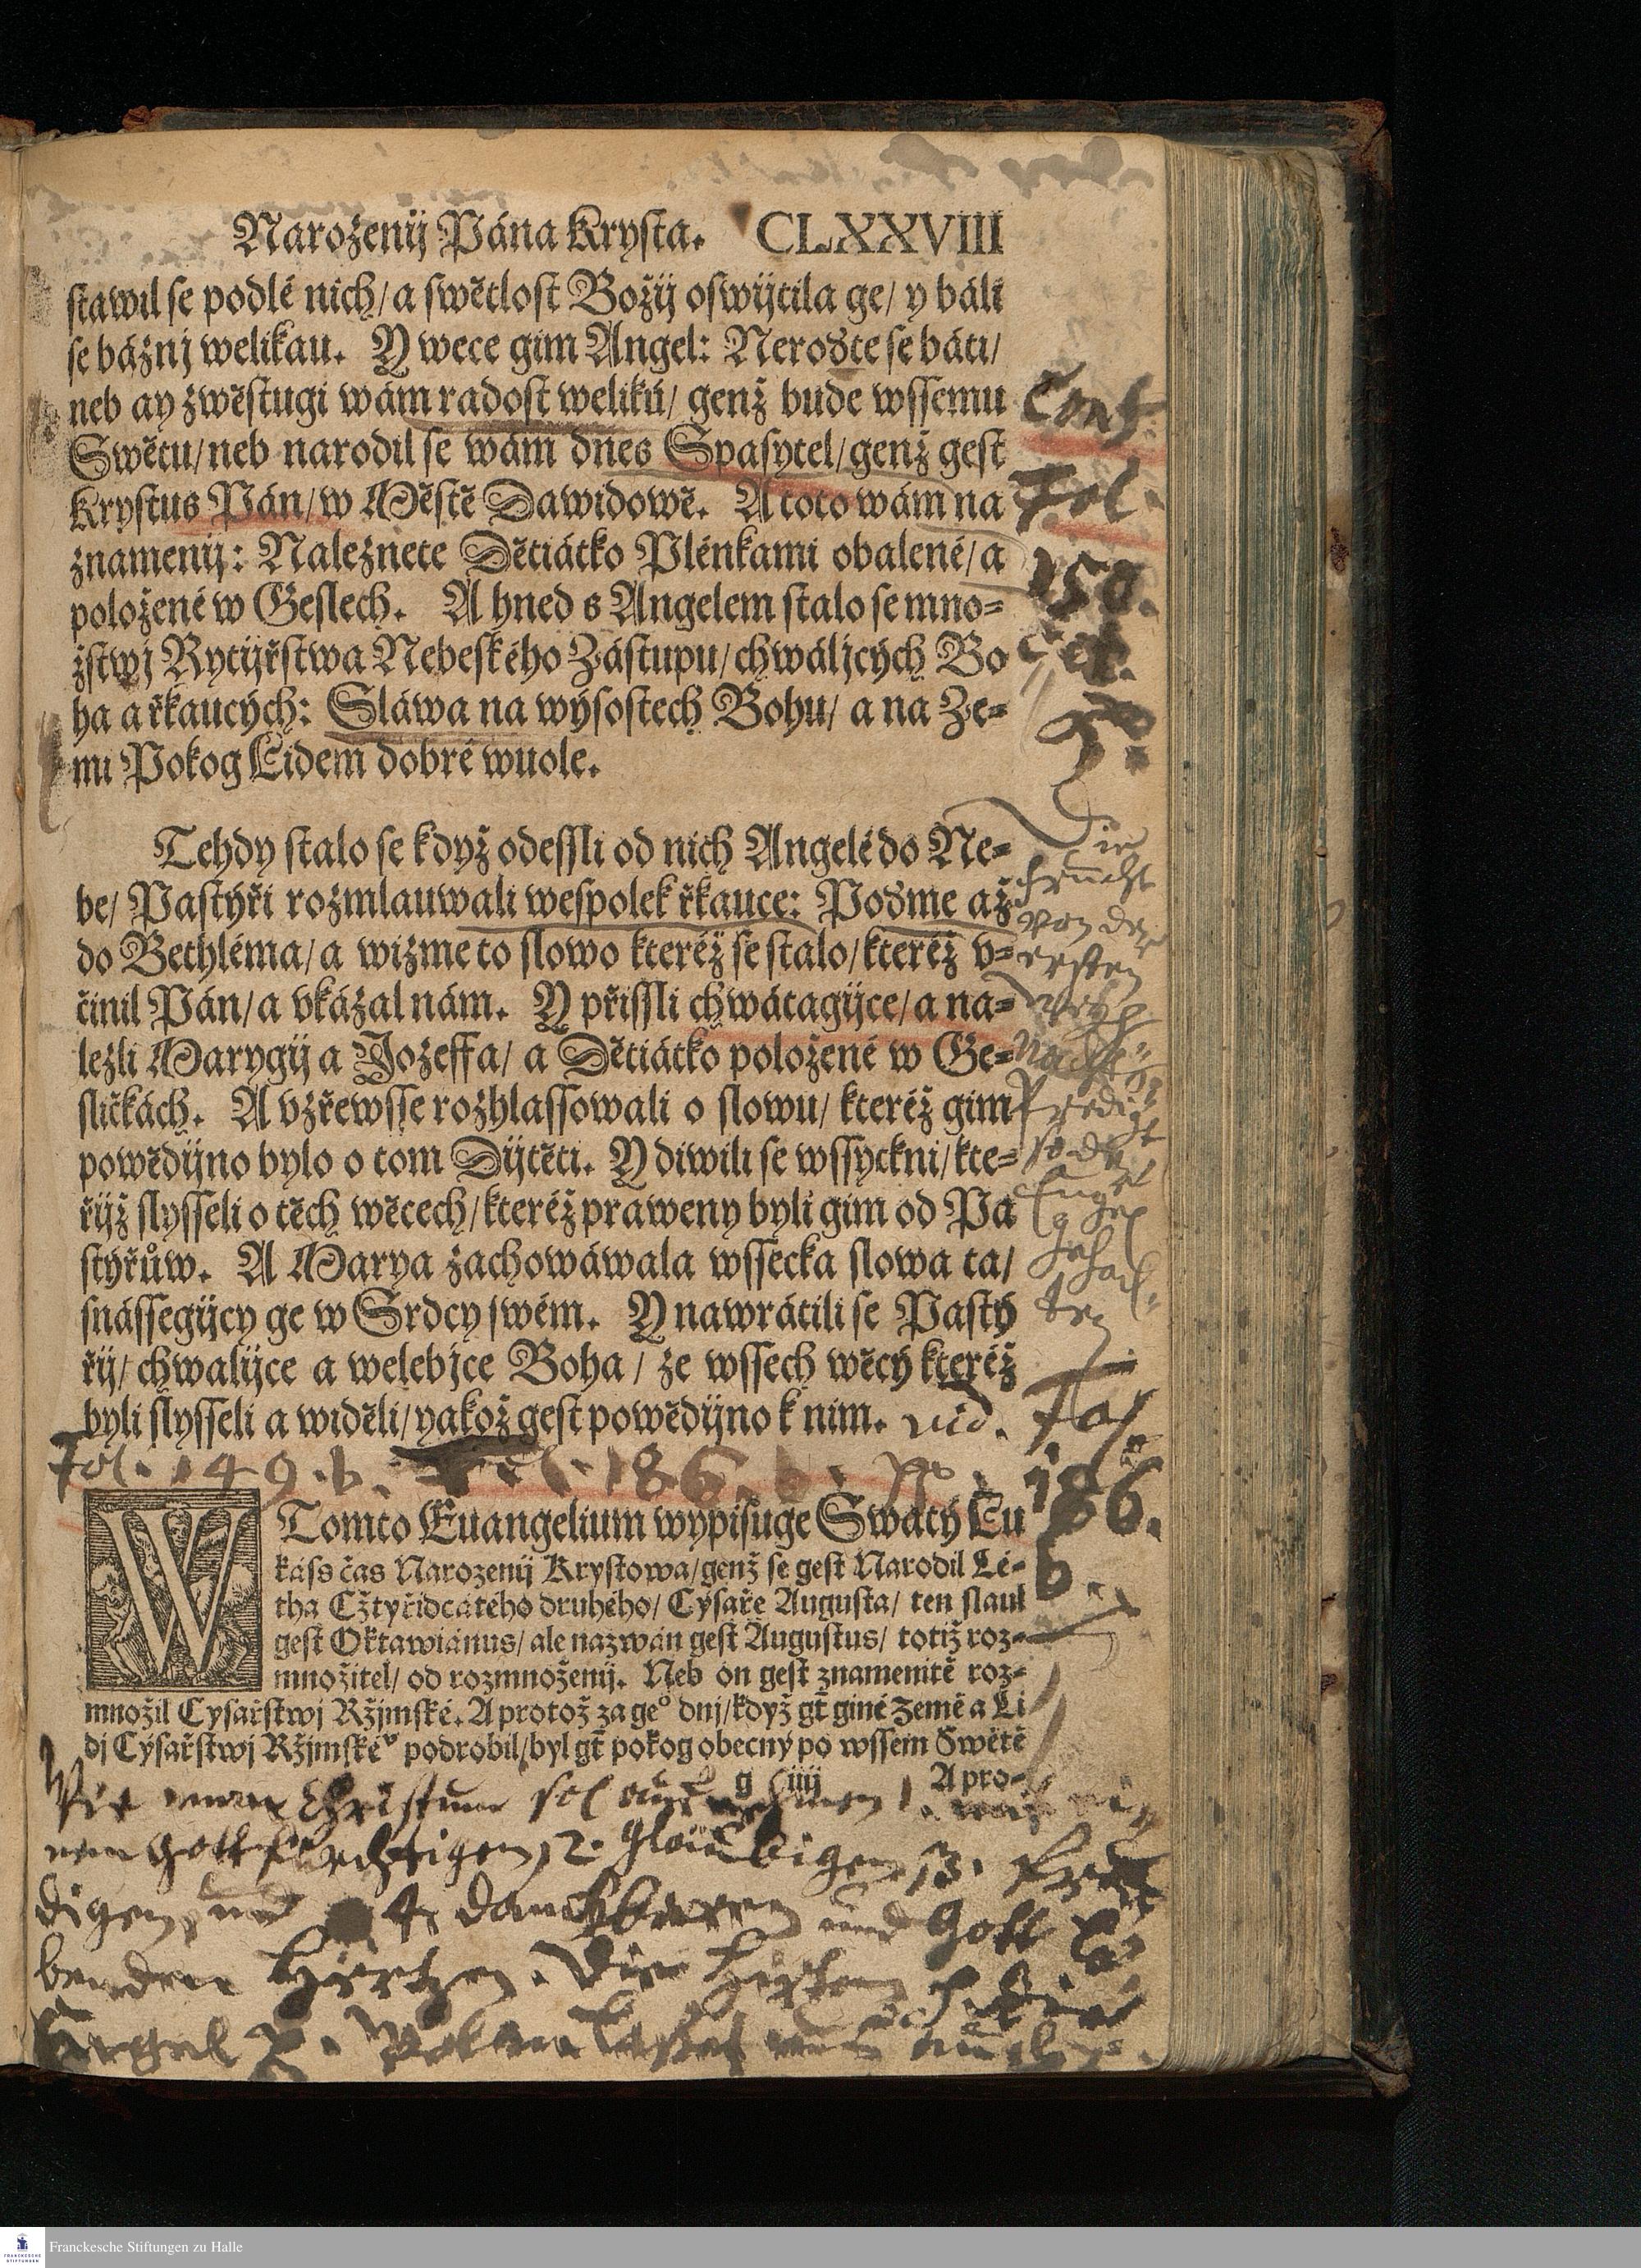 Narozenij Pána Krysta. CLXXVIII
stawil se podlé nich/ a swětlost Božij oswijtila ge/ y báli
se báznj welikau. Y wece gim Angel: Neroďte se báti/
neb ay zwěstugi wám radost welikú/ genž bude wssemu
Swětu/ neb narodil se wám dnes Spasytel/ genž gest
Krystus Pán/ w Městě Dawidowě. A toto wám na
znamenij: Naleznete Děťiátko Plénkami obalené/ a
položené w Geslech. A hned s Angelem stalo se mno=
žstwj Rytijřstwa Nebeského Zástupu/ chwáljcých Bo
ha a řkaucých: Sláwa na wýsostech Bohu/ a na Ze=
mi Pokog Lidem dobré wuole.
Conf.
Fol.
150.
et
Tehdy stalo se když odessli od nich Angelé do Ne=
be/ Pastýři rozmlauwali wespolek řkauce: Poďme až
do Bethléma/ a wizme to slowo kteréž se stalo/ kteréž v=
činil Pán/ a vkázal nám. Y přissli chwátagijce/ a na=
lezli Marygij a Jozeffa/ a Děťiátko položené w Ge=
sličkách. A vzřewsse rozhlassowali o slowu/ kteréž gim
powědijno bylo o tom Dijtěti. Y diwili se wssyckni/ kte=
řijž slysseli o těch wěcech/ kteréž praweny byli gim od Pa
stýřůw. A Marya zachowáwala wssecka slowa ta/
snássegijcy ge w Srdcy swém. Y nawrátili se Pastý
řij/ chwalijce a welebjce Boha/ ze wssech wěcý kteréž
byli slysseli a widěli/ yakož gest powědijno k nim. vid. Fol.
Die
frucht
von der
ersten
Weyh
nacht
Predigt
so der
Engel
gehal
ten
Fol. 149. b. 186. b.
186.
b.
W Tomto Euangelium wypisuge Swatý Lu
káss čas Narozenij Krystowa/ genž se gest Narodil Lé-
tha Cžtyřidcátého druhého/ Cýsaře Augusta/ ten slaul
gest Oktawiánus/ ale nazwán gest Augustus/ totiž roz-
množitel/ od rozmnoženij. Neb on gest znamenitě roz-
množil Cysařstwj Ržjmské. A protož za geº dnj/ když gt̄ giné Země a Li
di Cýsařstwj Ržjmskéº podrobil/ byl gt̄ pokog obecný po wssem Swětě
g iiij A pro-
Wie man Christum sol 1.
nem Gottfürchtigen, 2. Gläubigen, 3. Freu
digen, und 4. danckbaren und Gott lo
benden Hertzen. Die Hirten
Engel